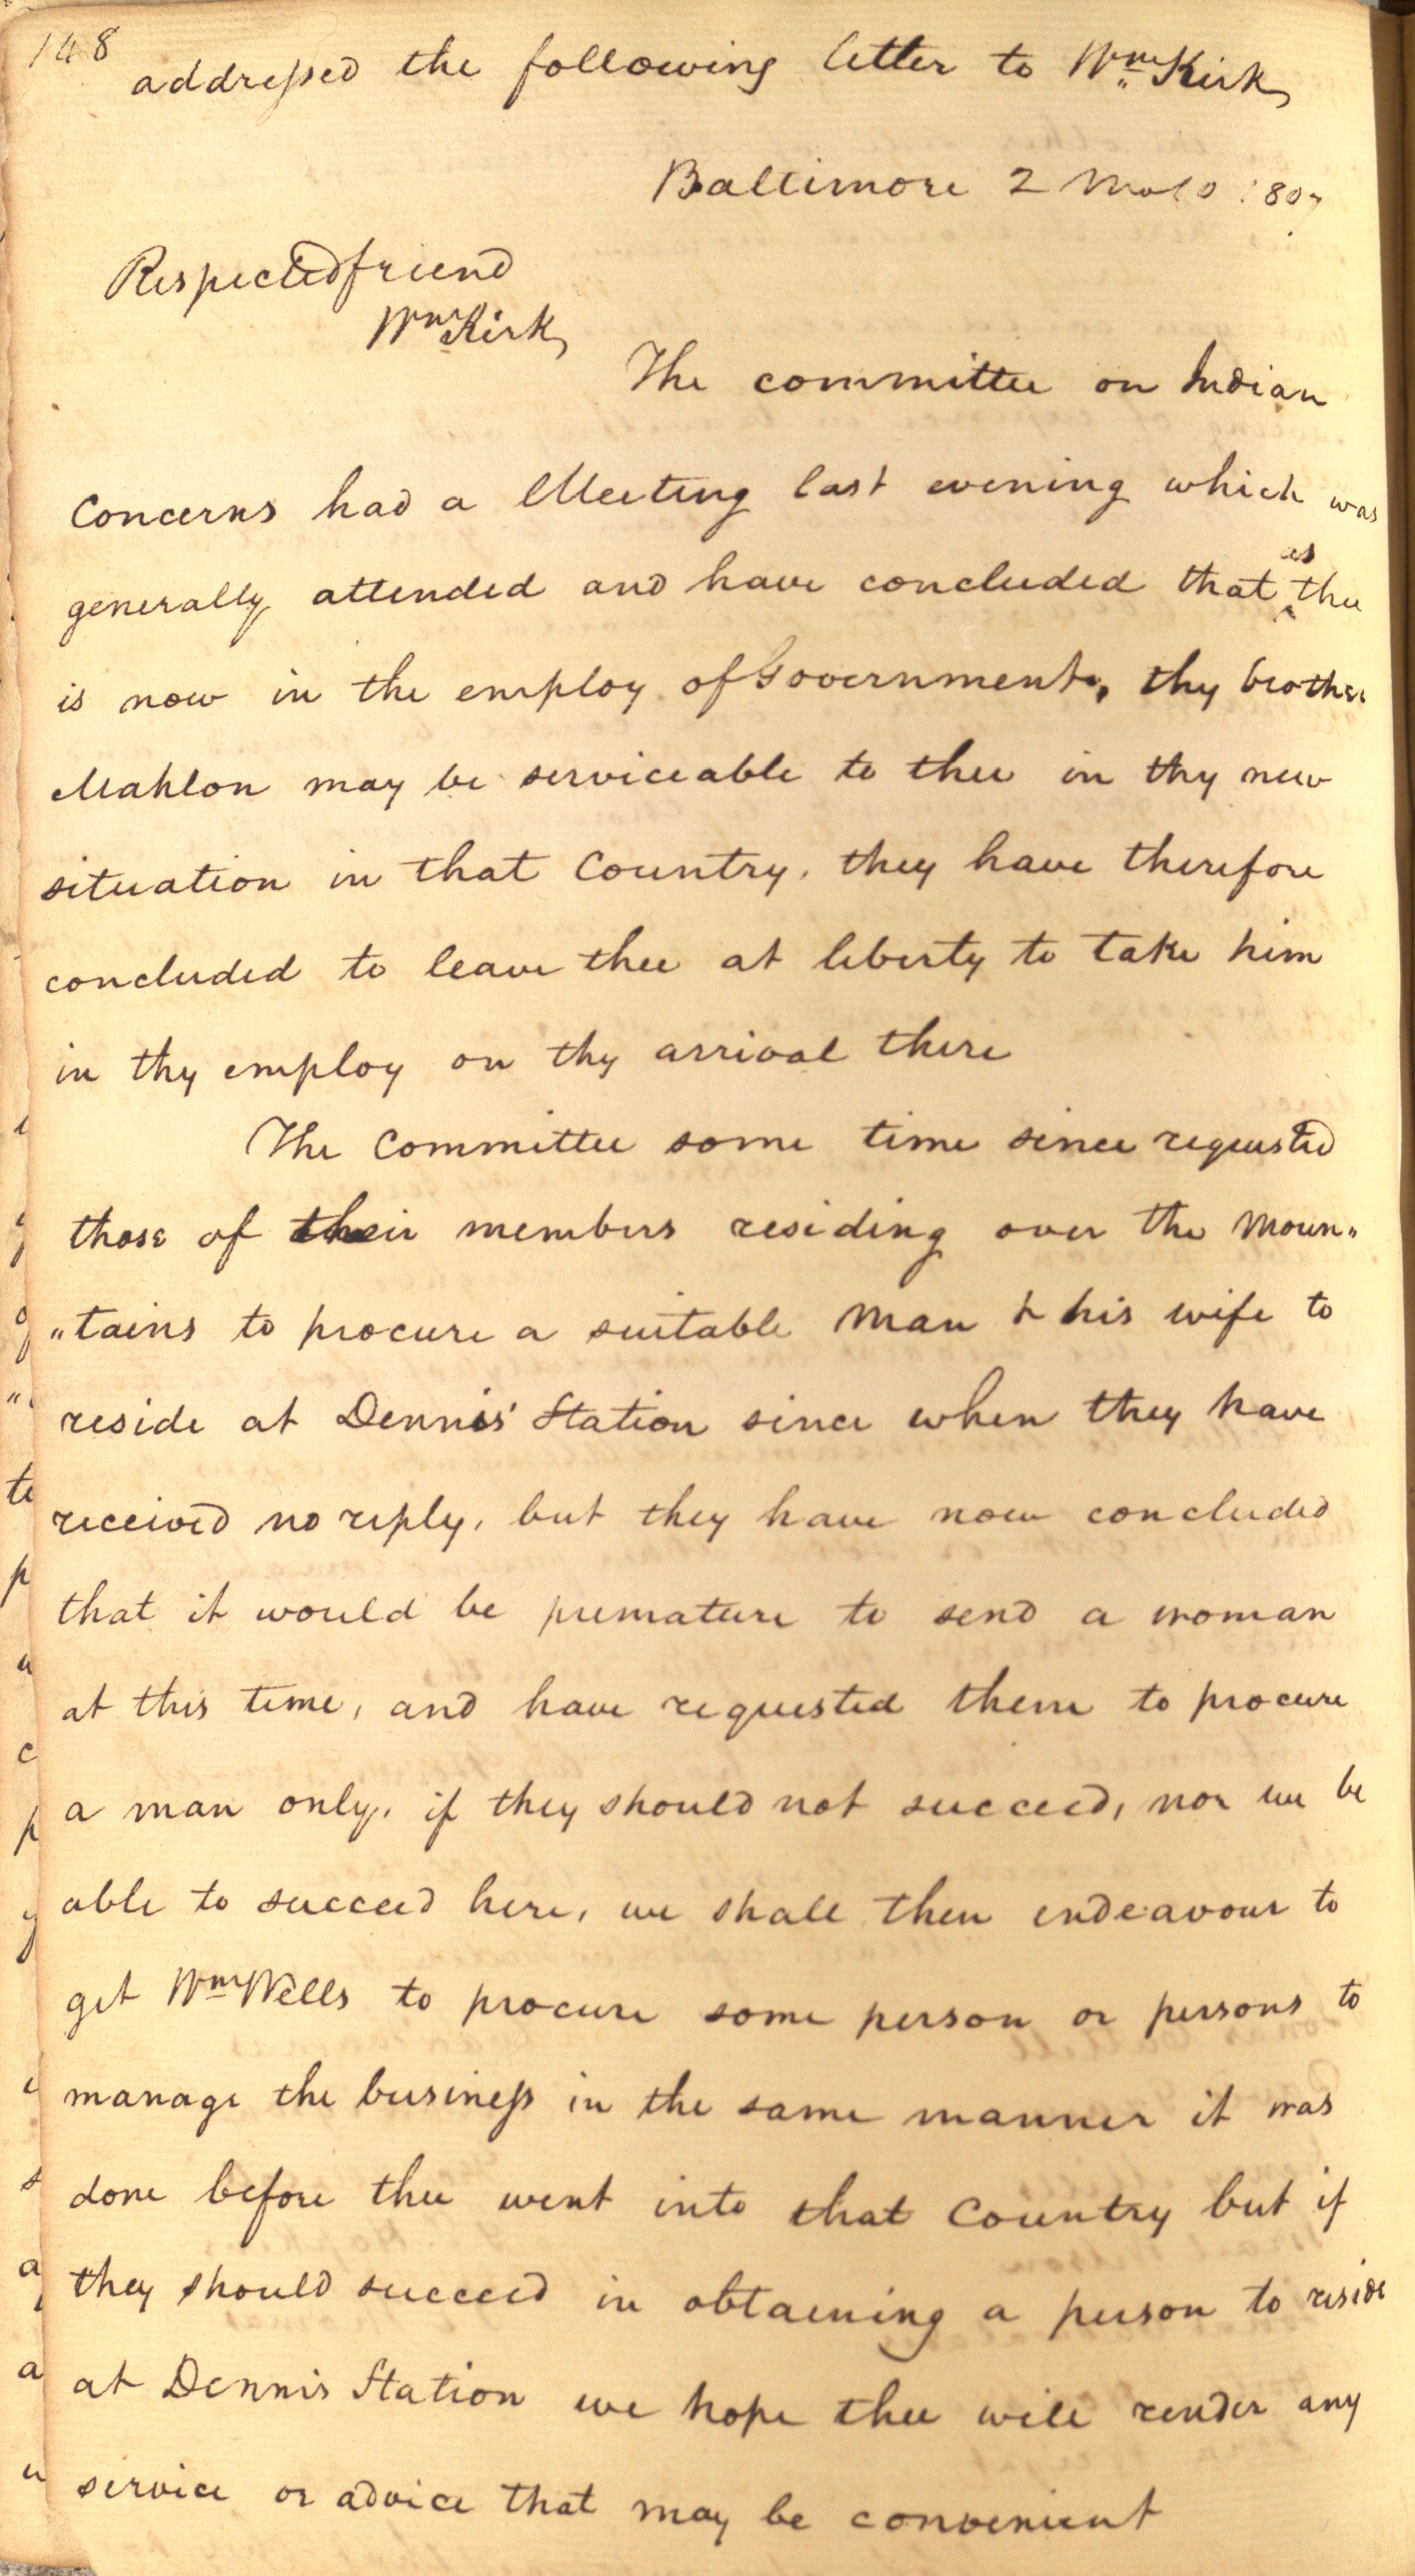 148
addressed the following letter to Wm Kirk
Baltimore 2 Mo 10 1807
Respected friend
Wm Kirk
The committee on Indian
Concerns had a Meeting last evening which was
generally attended and have concluded that as thee
is now in the employ of Government, thy brother
Mahlon may be serviceable to thee in thy new
situation in that Country, they have therefore
concluded to leave thee at liberty to take him
in thy employ on thy arrival there
The Committee some time since requested
those of their members residing over the Moun„
„tains to procure a suitable Man & his wife to
reside at Dennis' Station since when they have
received no reply, but they have now concluded
that it would be premature to send a woman
at this time, and have requested them to procure
a man only, if they should not succeed, nor we be
able to succeed here, we shall then endeavour to
get Wm Wells to procure some person or persons to
manage the business in the same manner it was
done before thee went into that Country but if
they should succeed in obtaining a person to reside
at Dennis Station we hope thee will render any
service or advice that may be convenient